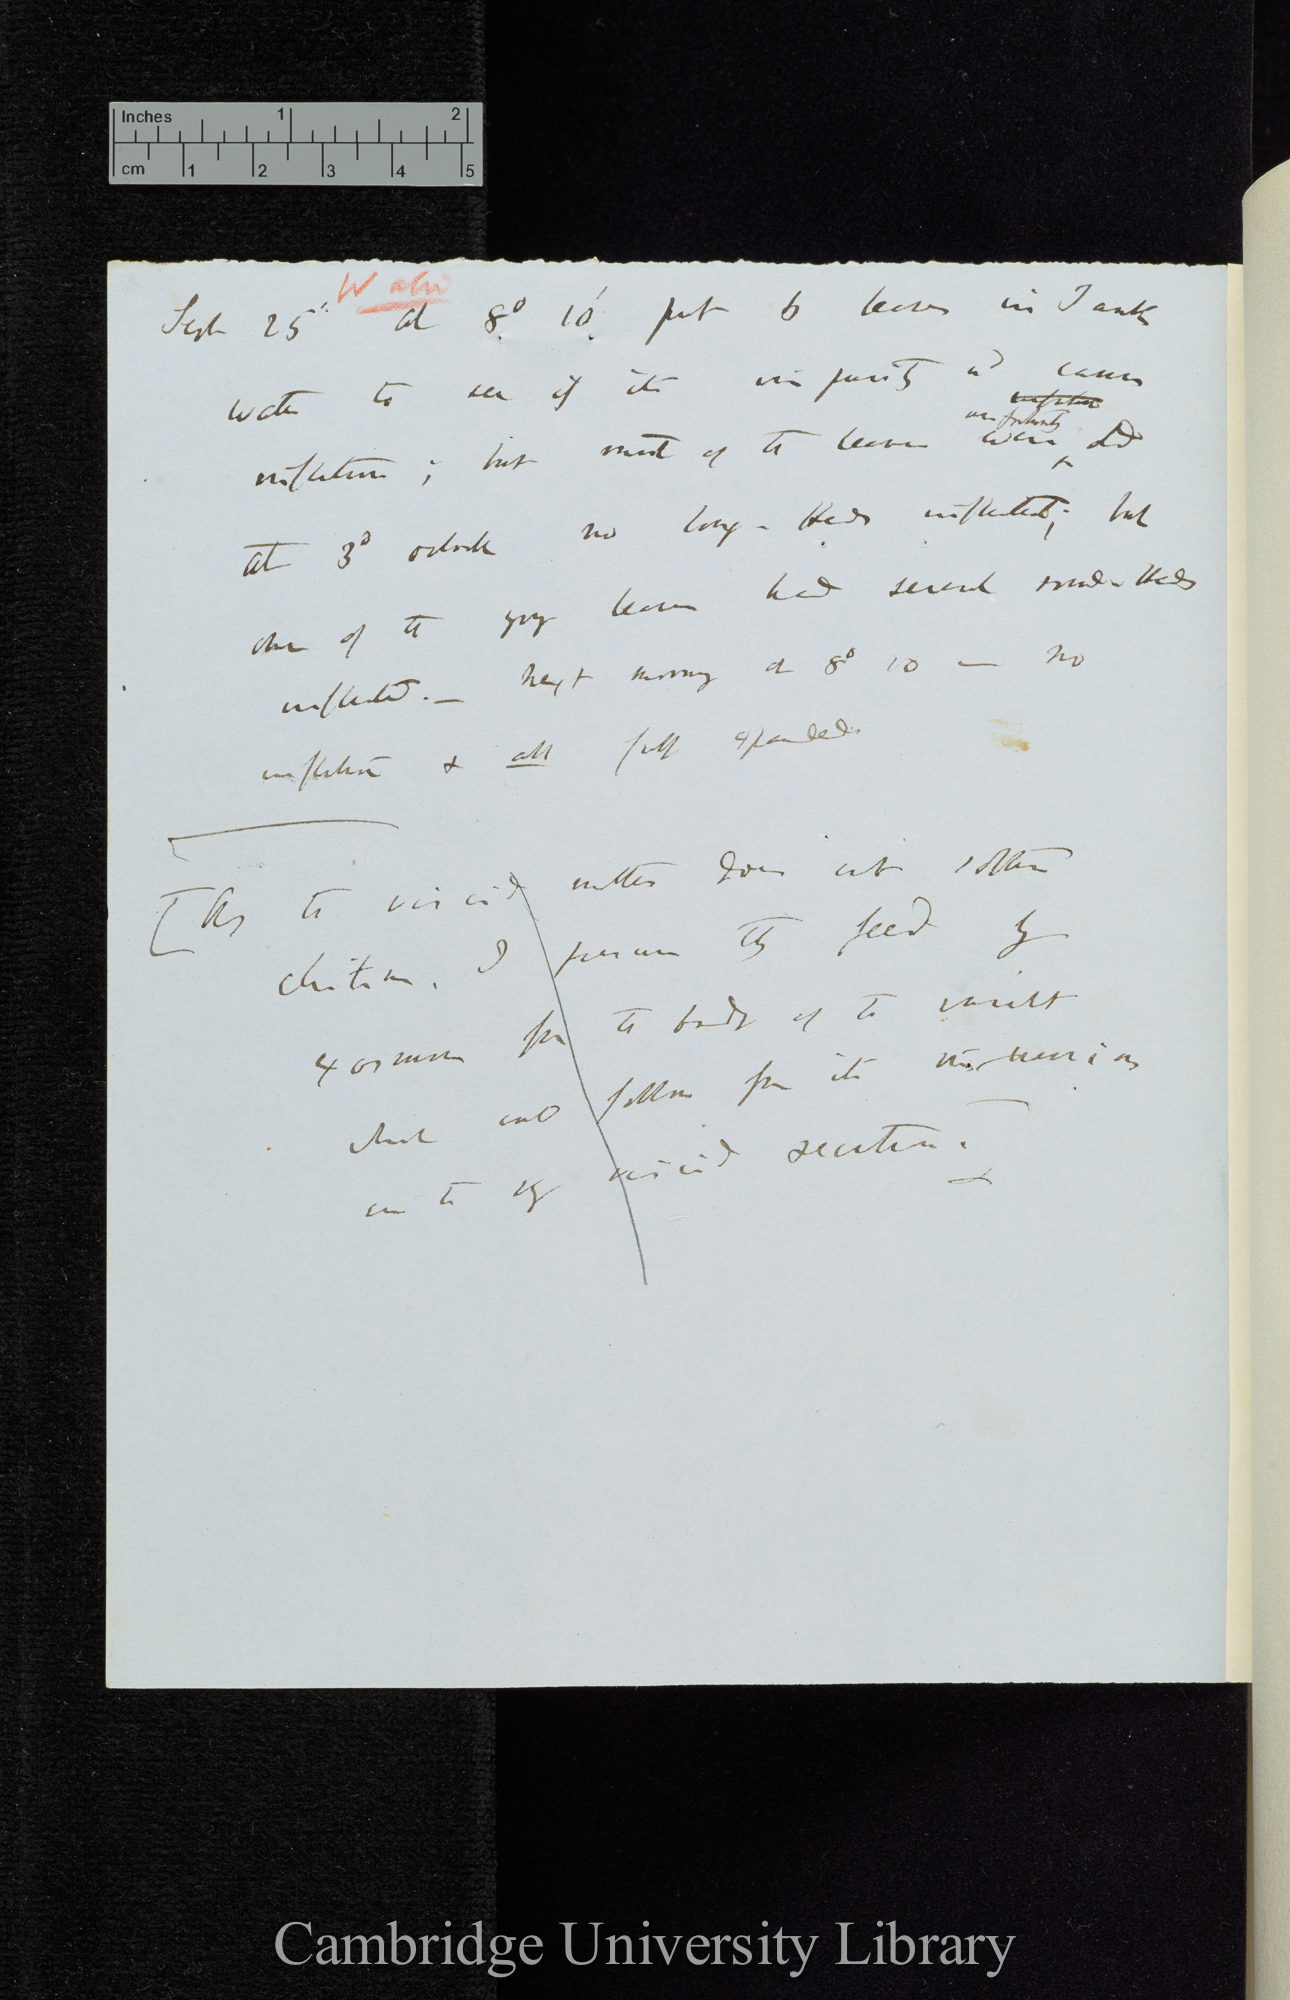 Inches 1 2
cm 1 2 3 4 5
Water
Sept 25th at 8° 10' put 6 leaves in Tank
water to see if its impurity wd cause
inflection
unfortunately
inflection; but most of the leaves were old
At 3° oclock no long-Heads inflected; but
one of the yng leaves had several round-Heads
inflected.— next morning at 8° 10 — no
inflection & all fully expanded.
[As the viscid matter does not soften
chitine. I presume they feed by
exosmose from the body of the insect
which wd follow from its immersion
in the viscid secretion.]
Cambridge University Library